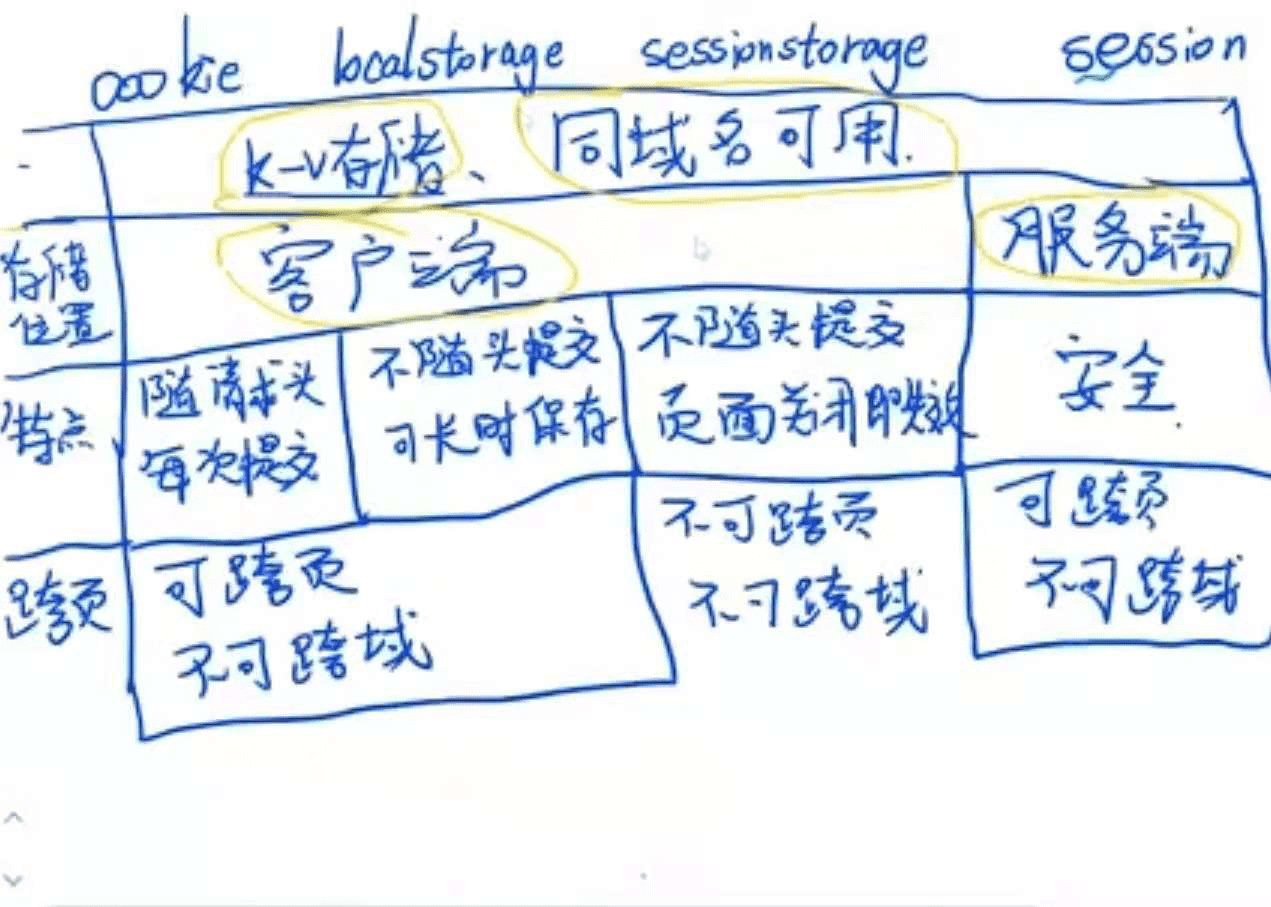 cookie localstorage sessionstorage session
k-v存储、 同域名可用.
存储位置 客户端 服务端
特点 随请求头 每次提交 不随头提交 可长时保存 不随头提交 页面关闭即失效 安全.
跨页 可跨页 不可跨域 不可跨页 不可跨域 可跨页 不可跨域